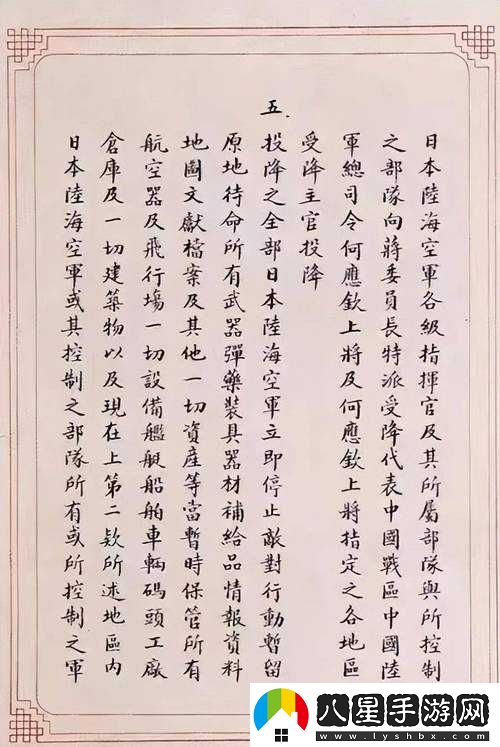 日本陸海空軍各級指揮官及其所屬部隊與所控制
之部隊向蔣委員長特派受降代表中國戰區中國陸
軍總司令何應欽上將及何應欽上將指定之各地區
受降主官投降
五.
投降之全部日本陸海空軍立即停止敵對行動暫留
原地待命所有武器彈藥裝具器材補給品情報資料
地圖文獻檔案及其他一切資產等當暫時保管所有
航空器及飛行場一切設備艦艇船舶車輛碼頭工廠
倉庫及一切建築物以及現在上第二款所述地區內
日本陸海空軍或其控制之部隊所有或所控制之軍
八星手游网
www.lyshbx.com